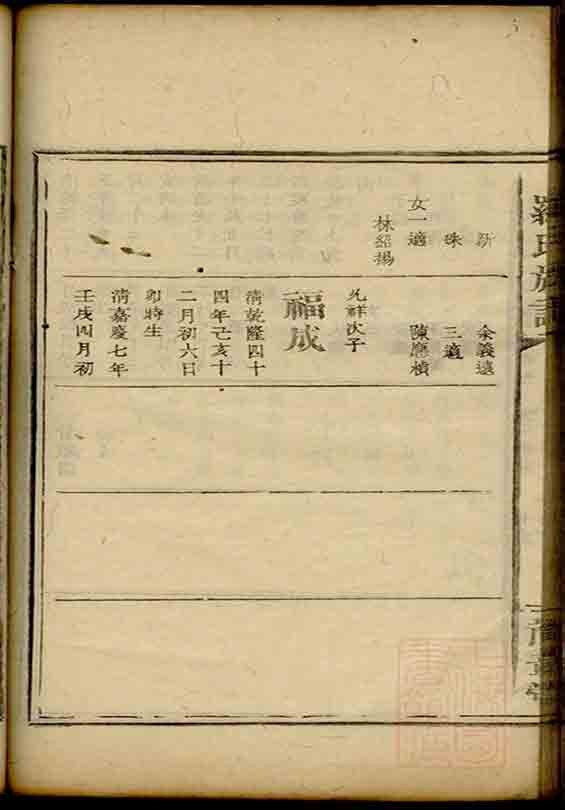 羅氏族譜
新
珠
女一適
林紹揚
余義遠
三適
陳應楨
允祥次子
福成
清乾隆四十
四年己亥十
二月初六日
卯時生
清嘉慶七年
壬戌四月初